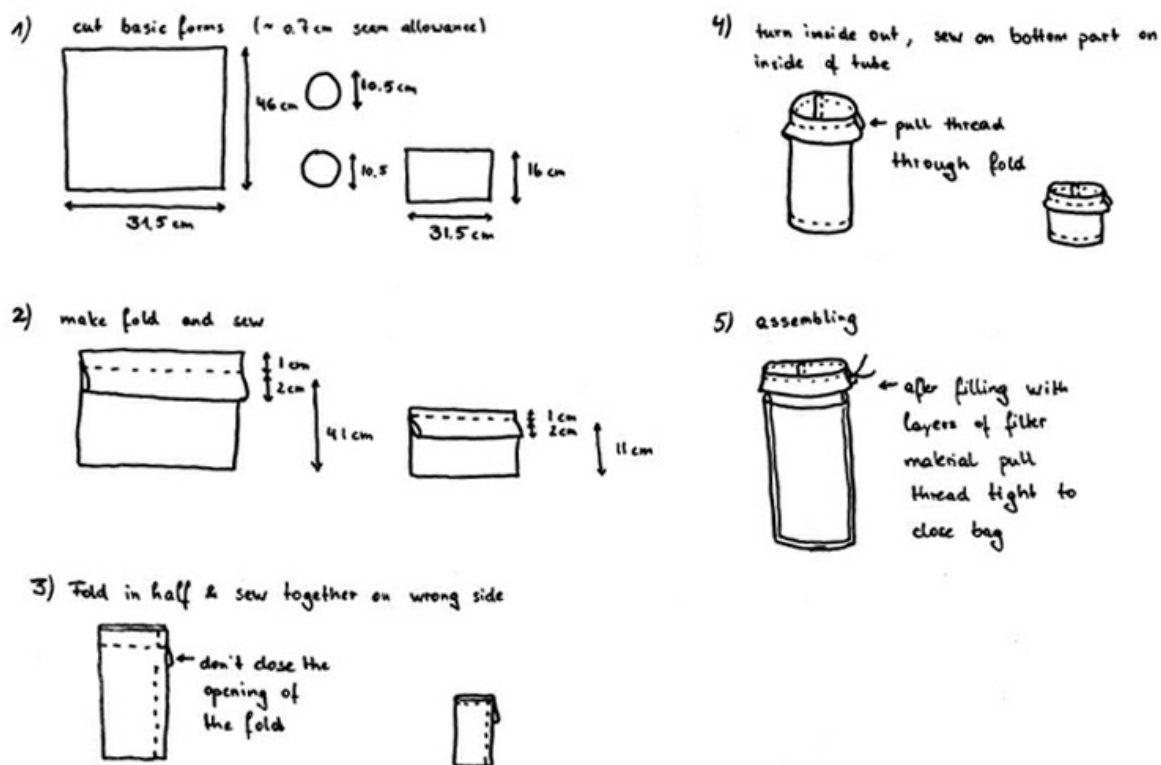 1) cut basic forms (~ 0.7 cm seam allowance)
46 cm
31.5 cm
10.5 cm
10.5
16 cm
31.5 cm
2) make fold and sew
1 cm
2 cm
41 cm
1 cm
2 cm
11 cm
3) Fold in half & sew together on wrong side
don't close the
opening of
the folds
4) turn inside out, sew on bottom part on
inside of tube
pull thread
through fold
5) assembling
after filling with
layers of filter
material pull
thread tight to
close bag